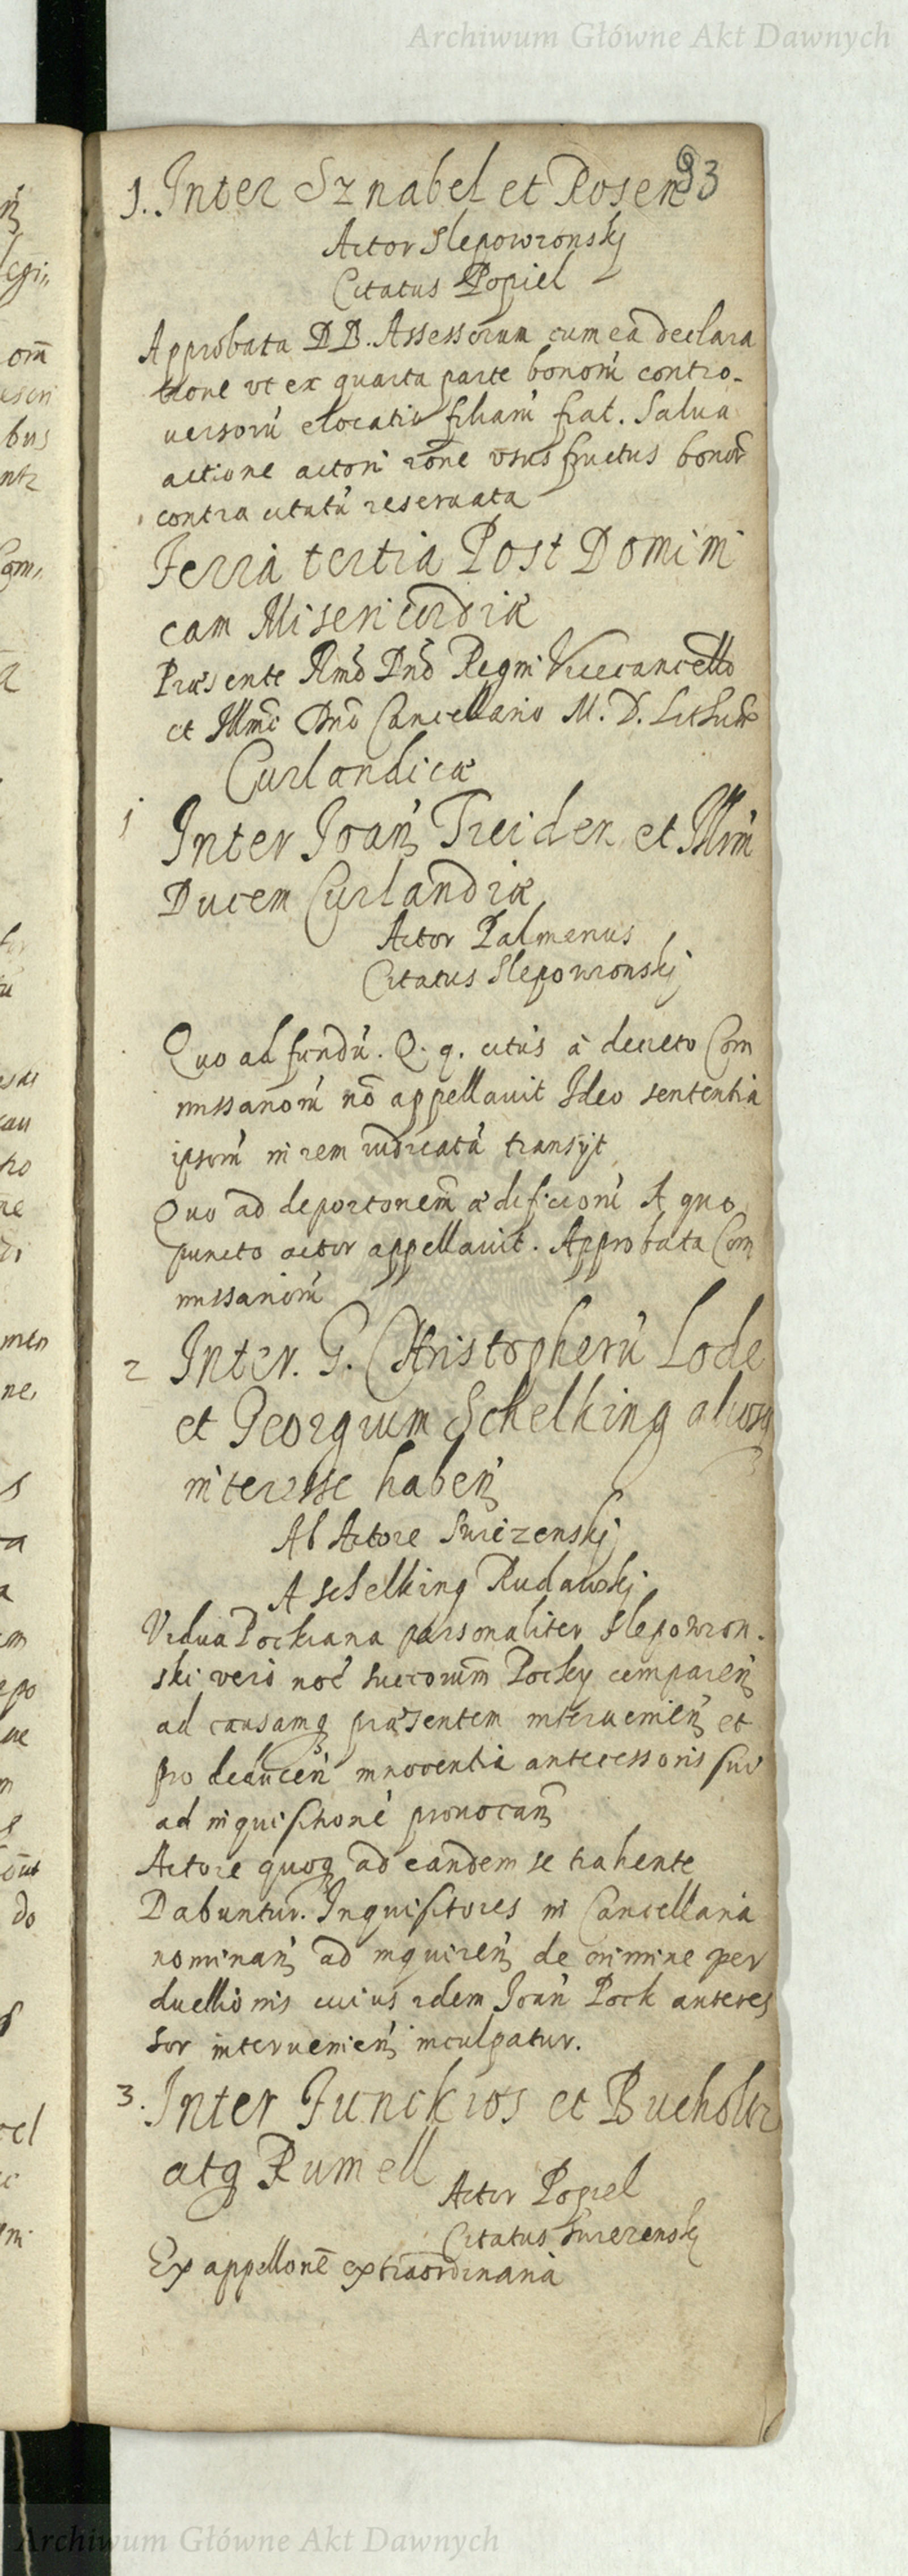 Archiwum Główne Akt Dawnych
93
1. Inter Sznabel et Rosen
Actor Slepowronskj
Citatus Popiel
Approbata DD. Assessorum cum ea declara
tione vt ex quarta parte bonorũ contro-
uersorũ elocatio filiarũ fiat. Salua
actione actori rõne vsus fructus bonorũ
contra citatũ reseruata
Feria tertia Post Domini
cam Misericordiæ
Præsente Rmõ Dnõ Regni Vicecancello
et Illmõ Dnõ Cancellario M. D. Lithuæ
Curlandicæ
1 Inter Joañ Treiden et Illm̃
Ducem Curlandiæ
Actor Palmenus
Citatus Slepowronskj
Quo ad fundũ. Q. q. citũs à decreto Com
missariorũ nõ appellauit Ideo sententia
ipsorũ in rem iudicatã transijt
Quo ad deportonem̃ ædificiorũ A quo
puncto actor appellauit. Approbata Com
missariorũ
2 Inter. G. Christopherũ Lode
et Georgium Schelking aliosq
interesse habeñ
Ab Actore Swiezenskj
A Schelking Rudawskj
Vidua Pockiana personaliter Slepowron.
ski verò noẽ succorum̃ Pocky compareñ
ad causamq præsentem interuenieñ et
pro deduceñ innocentia antecessoris sui
ad inquisitionẽ prouocañ
Actore quoq ad eandem se trahente
Dabuntur. Inquisitores in Cancellaria
nominañ ad inquireñ de crimine per
duellionis cuius idem Joañ Pock anteces
sor interuenieñ inculpatur.
3. Inter Funckios et Bucholtz
atq Rumell
Actor Popiel
Citatus Swiezenskj
Ex appellonẽ extraordinaria
Archiwum Główne Akt Dawnych